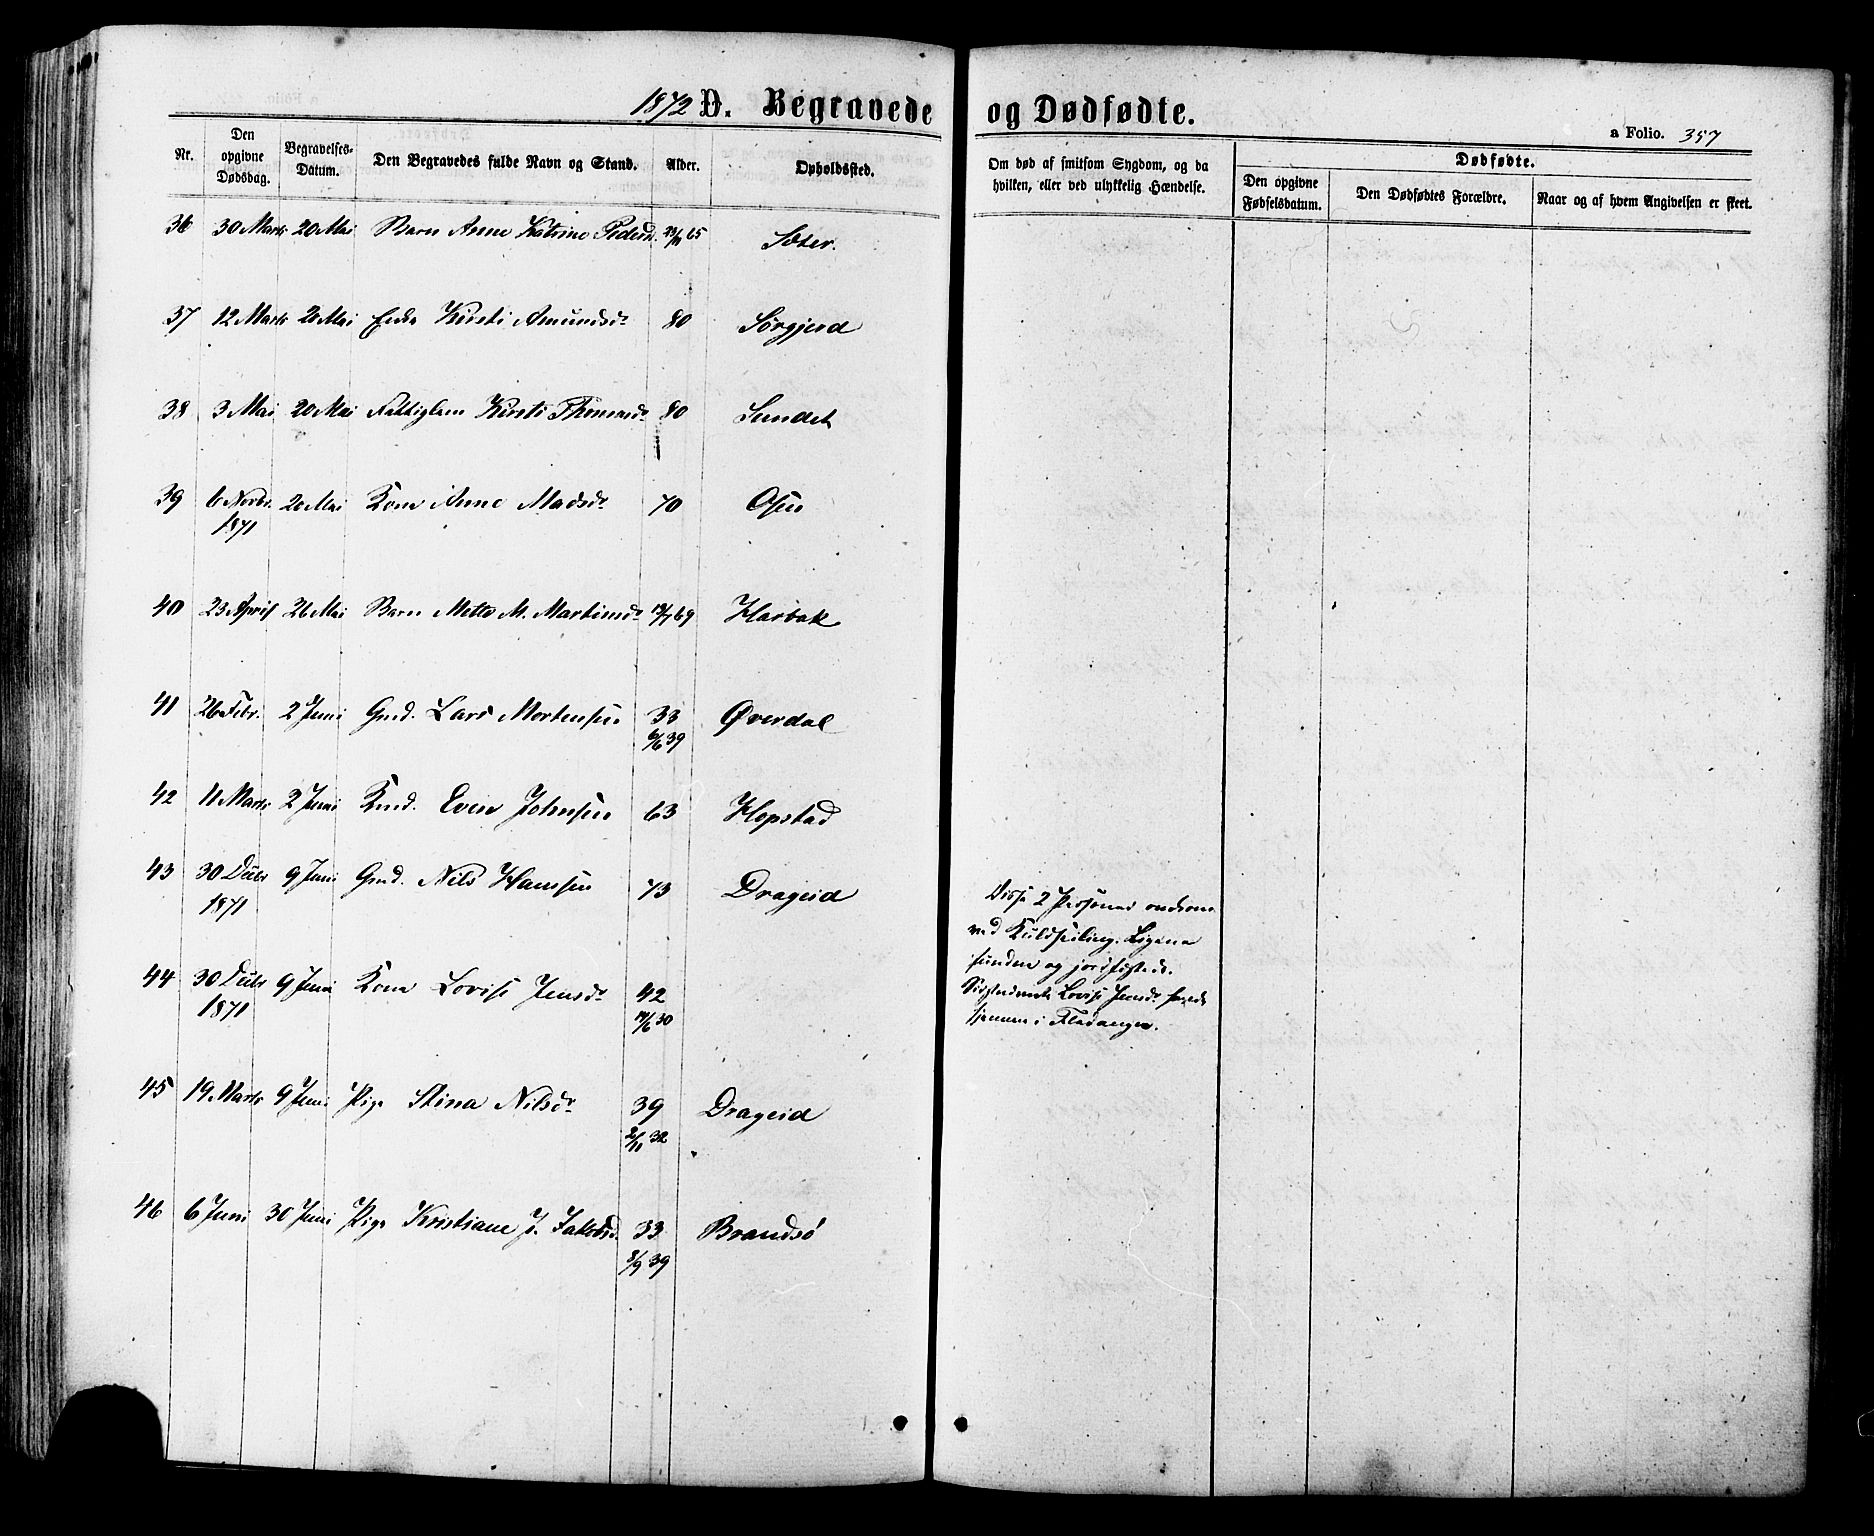 1872 D. Begravede og Dødfødte.
a Folio. 357
Nr. Den opgivne Dødsdag. Begravelses-Datum. Den Begravedes fulde Navn og Stand. Alder. Opholdssted. Om død af smitsom Sygdom, og da hvilken, eller ved ulykkelig Hændelse. Dødfødte. Den opgivne Fødselsdatum. Den Dødfødtes Forældre. Naar og af hvem Angivelsen er skeet.
36 30 Marts 20 Mai Barn Anne Katrine Pedersd. 23/11 65 Sæter.
37 12 Marts 20 Mai Enke Kirsti Amundsdr 80 Sørgjerd
38 3 Mai 20 Mai Fattiglem Kirsti Thomasdr 80 Sundet
39 6 Novbr. 20 Mai Kone Anne Madsdr 70 Osen
1871
40 23 April 26 Mai Barn Mette M. Martinsdr 13/7 69 Harbak
41 26 Febr. 2 Juni Gmd. Lars Mortensen 33 Øverdal
6/6 39
42 11 Marts 2 Juni Kmd. Even Johnsen 63 Hopstad
43 30 Decbr 9 Juni Gmd. Nils Hansen 73 Drageid
1871
Disse 2 Personer omkom
ved Kuldseiling. Ligene
fundne og jordfæstede.
44 30 Decbr 9 Juni Kone Lovise Jensdr 42
1871 14/6 30
Sidstnævnte Lovise Jensdr havde
hjemme i Fladanger.
45 19 Marts 9 Juni Pige Stina Nilsdr 39 Drageid
2/11 32
46 6 Juni 30 Juni Pige Kristiane J. Jakobsd. 33 Brandsø
8/9 39